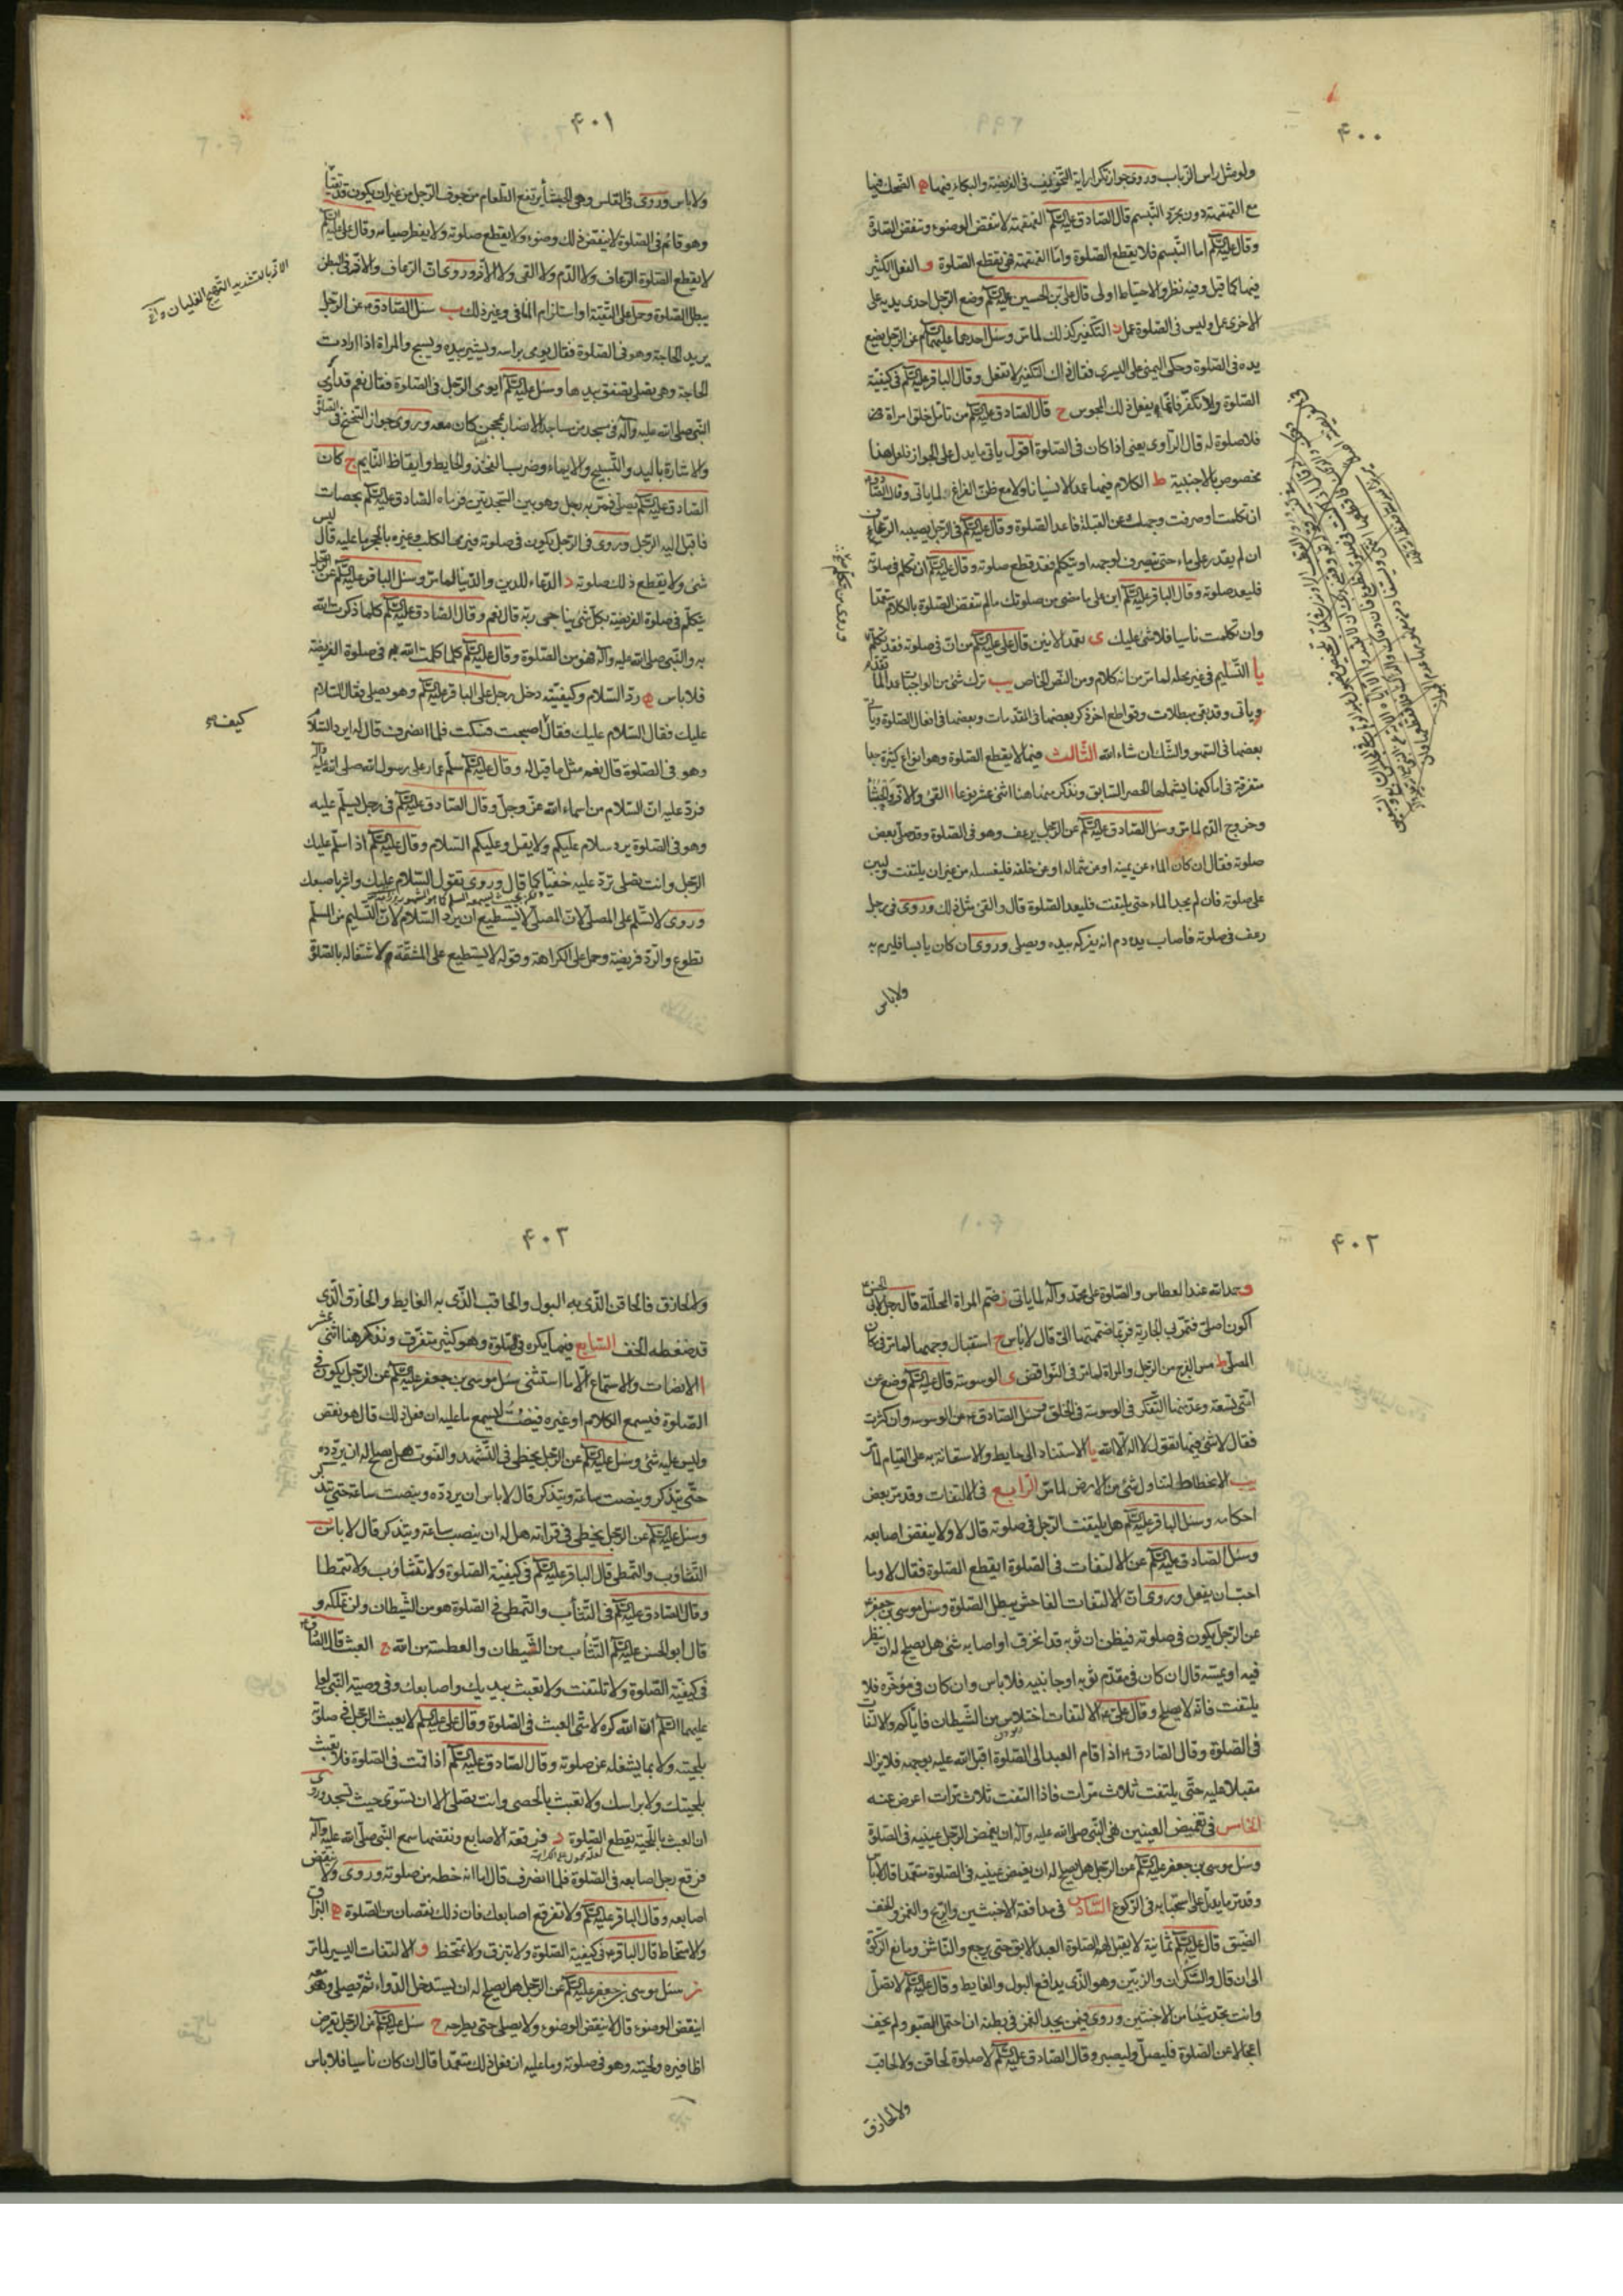 ۴۰۰
ولو مثل راس الذباب وروى جواز تكرار اية التخويف فى الفريضة والبكاء فيها ه الضحك فيها
مع القهقهة دون مجرد التبسم قال الصادق عليه السلم القهقهة لا تنقض الوضوء وتنقض الصلاة
وقال عليه السلم اما التبسم فلا يقطع الصلوة واما القهقهة فهى يقطع الصلوة و الفعل الكثير
فيها كما قيل وفيه نظر والاحتياط اولى قال على بن الحسين عليه السلم وضع الرجل احدى يديه على
الاخرى عمل وليس فى الصلوة عمل ز التكفير كذلك لما مر وسئل احدهما عليهما السلم عن الرجل يضع
يده فى الصلوة وحكى اليمنى على اليسرى فقال ذلك التكفير لا تفعل وقال الباقر عليه السلم فى كيفية
الصلوة ولا تكفر فانما يفعل ذلك المجوس ح قال الصادق عليه السلم من تامل خلق امراة
فلا صلوة له قال الراوى يعنى اذا كان فى الصلوة اقول ياتى ما يدل على الجواز فلعل هذا
مخصوص بالاجنبية ط الكلام فيها عمدا لا نسيانا ولا مع ظن الفراغ لما ياتى وقال الصادق
ان تكلمت او صرفت وجهك عن القبلة فاعد الصلوة وقال عليه السلم فى الرجل يصيبه الرعاف
ان لم يقدر على ماء حتى ينصرف لوجهه او يتكلم فقد قطع صلوته وقال عليه السلم ان تكلم فى صلوته
فليعد صلوته وقال الباقر عليه السلم ابن على ما مضى من صلوتك ما لم تنقض الصلوة بالكلام متعمدا
وان تكلمت ناسيا فلا شئ عليك ى تعمد الانين قال على عليه السلم من ان فى صلوته فقد تكلم
يا التسليم فى غير محله لما مر من انه كلام ومن النص الخاص يب ترك شئ من الواجبات عمدا لما تقدم
وياتى وقد بقى مبطلات وقواطع اخر ذكر بعضها فى المقدمات وبعضها فى افعال الصلوة وياتى
بعضها فى السهو والشك ان شاء الله الثالث فيما لا يقطع الصلوة وهو انواع كثيرة جدا
متفرقة فى اماكنها يشملها الحصر السابق ونذكر منها هنا اثنى عشر نوعا ا القئ والاز والجشأ
وخروج الدم لما مر وسئل الصادق عليه السلم عن الرجل يرعف وهو فى الصلوة وقد صلى بعض
صلوته فقال ان كان الماء عن يمينه او عن شماله او عن خلفه فليغسله من غير ان يلتفت وليبن
على صلوته فان لم يجد الماء حتى يلتفت فليعد الصلوة قال والقئ مثل ذلك وروى فى رجل
رعف فى صلوته فاصاب يده دم انه يفركه بيده ويصلى وروى ان كان يابسا فليرم به
ولا باس
۴۰۱
ولا باس وروى فى القلس وهى الجشأ يرتفع الطعام من جوف الرجل من غير ان يكون تقيأ
وهو قائم فى الصلوة لا ينقض ذلك وضوءه ولا يقطع صلوته ولا يفطر صيامه وقال عليه السلم
لا يقطع الصلوة الرعاف ولا الدم ولا القى ولا الاز وروى ان الرعاف والاز فى البطن
يبطل الصلوة وحمل على التقية او استلزام المنافى وغير ذلك ب سئل الصادق ع عن الرجل
يريد الحاجة وهو فى الصلوة فقال يومى براسه ويشير بيده ويسبح والمراة اذا ارادت
الحاجة وهى تصلى تصفق بيدها وسئل عليه السلم ايومى الرجل فى الصلوة فقال نعم قد اومى
النبى صلى الله عليه وآله فى مسجد من مساجد الانصار بمحجن كان معه وروى جواز التنحنح فى الصلوة
والاشارة باليد والتسبيح والايماء وضرب الفخذ والحايط وايقاظ النايم ج كان
الصادق عليه السلم يصلى فمر به رجل وهو بين السجدتين فرماه الصادق عليه السلم بحصاة
فاقبل اليه الرجل وروى فى الرجل يكون فى صلوته فيرمى الكلب وغيره بالحجر ما عليه قال ليس
شئ ولا يقطع ذلك صلوته د الدعاء للدين والدنيا لما مر وسئل الباقر عليه السلم عن الرجل
يتكلم فى صلوة الفريضة بكل شئ يناجى ربه قال نعم وقال الصادق عليه السلم كلما ذكرت الله
به والنبى صلى الله عليه وآله فهو من الصلوة وقال عليه السلم كلما كلمت الله به فى صلوة الفريضة
فلا باس ه رد السلام وكيفيته دخل رجل على الباقر عليه السلم وهو يصلى فقال السلام
عليك فقال السلام عليك فقال اصبحت فسكت فلما انصرف قال له ايرد السلام
وهو فى الصلوة قال نعم مثل ما قيل له وقال عليه السلم سلم عمار على رسول الله صلى الله عليه وآله
فرد عليه ان السلام من اسماء الله عز وجل وقال الصادق عليه السلم فى رجل يسلم عليه
وهو فى الصلوة يرد سلام عليكم ولا يقل وعليكم السلام وقال عليه السلم اذا سلم عليك
الرجل وانت تصلى ترد عليه خفيا كما قال وروى تقول السلام عليك واشر باصبعك
وروى لا تسلم على المصلى لان المصلى لا يستطيع ان يرد السلام لان التسليم من المسلم
تطوع والرد فريضة وحمل على الكراهة وقوله لا يستطيع على المشقة لاشتغاله بالصلوة
كيف
۴۰۲
و حمد الله عند العطاس والصلوة على محمد وآله لما ياتى ز ضم المراة المحللة قال رجل لابى الحسن ع
اكون اصلى فتمر بى الجارية فربما ضممتها الى قال لا باس ح استقبال وجهها لما مر فى مكان
المصلى ط مس الفرج من الرجل والمراة لما مر فى النواقض ى الوسوسة قال عليه السلم وضع عن
امتى تسعة وعد منها التفكر فى الوسوسة فى الخلق وسئل الصادق ع عن الوسوسة وان كثرت
فقال لا شئ فيها تقول لا اله الا الله يا الاستناد الى حايط والاستعانة به على القيام لما مر
يب الانحطاط لتناول شئ من الارض لما مر الرابع فى الالتفات وقد مر بعض
احكامه وسئل الباقر عليه السلم هل يلتفت الرجل فى صلوته قال لا ولا ينقض اصابعه
وسئل الصادق عليه السلم عن الالتفات فى الصلوة ايقطع الصلوة فقال لا وما
احب ان يفعل وروى ان الالتفات الفاحش يبطل الصلوة وسئل موسى بن جعفر ع
عن الرجل يكون فى صلوته فيظن ان ثوبه قد انخرق او اصابه شئ هل يصلح له ان ينظر
فيه او يمسه قال ان كان فى مقدم ثوبه او جانبيه فلا باس وان كان فى مؤخره فلا
يلتفت فانه لا يصلح وقال على ع الالتفات اختلاس من الشيطان فاياكم والالتفات
فى الصلوة وقال الصادق ع اذا قام العبد الى الصلوة اقبل الله عليه بوجهه فلا يزال
مقبلا عليه حتى يلتفت ثلاث مرات فاذا التفت ثلاث مرات اعرض عنه
الخامس فى تغميض العينين نهى النبى صلى الله عليه وآله ان يغمض الرجل عينيه فى الصلوة
وسئل موسى بن جعفر عليه السلم عن الرجل هل يصلح له ان يغمض عينيه فى الصلوة متعمدا قال لا باس
وقد مر ما يدل على استحبابه فى الركوع السادس فى مدافعة الاخبثين والريح والغمز والخف
الضيق قال عليه السلم ثمانية لا يقبل لهم الصلوة العبد الابق حتى يرجع والناشز ومانع الزكوة
الى ان قال والسكران والزبين وهو الذى يدافع البول والغايط وقال عليه السلم لا تصل
وانت تجد شيئا من الاخبثين وروى فيمن يجد الغمز فى بطنه ان احتمل الصبر ولم يخف
اعجالا عن الصلوة فليصل وليصبر وقال الصادق عليه السلم لا صلوة لحاقن ولا لحاقب
ولا لحازق
۴۰۳
ولا لحازق فالحاقن الذى به البول والحاقب الذى به الغايط والحازق الذى
قد ضغطه الخف السابع فيما يكره فى الصلوة وهو كثير متفرق ونذكر هنا اثنى عشر
ا الانصات والاستماع الا ما استثنى سئل موسى بن جعفر عليه السلم عن الرجل يكون فى
الصلوة فيسمع الكلام او غيره فينصت ليسمع ما عليه ان فعل ذلك قال هو نقص
وليس عليه شئ وسئل عليه السلم عن الرجل يخطى فى التشهد والقنوت هل يصلح له ان يردده
حتى يتذكر وينصت ساعة ويتذكر قال لا باس ان يردده وينصت ساعة حتى يتذكر
وسئل عليه السلم عن الرجل يخطى فى قرائته هل له ان ينصت ساعة ويتذكر قال لا باس ب
التثاؤب والتمطى قال الباقر عليه السلم فى كيفية الصلوة ولا تتثاؤب ولا تتمطا
وقال الصادق عليه السلم فى التثأب والتمطى فى الصلوة هو من الشيطان ولن تملكه و
قال ابو الحسن عليه السلم التثأب من الشيطان والعطسة من الله ج العبث قال الصادق ع
فى كيفية الصلوة ولا تلتفت ولا تعبث بيديك واصابعك وفى وصية النبى لعلى
عليهما السلم ان الله كره لامتى العبث فى الصلوة وقال على عليه السلم لا يعبث الرجل فى صلوته
بلحيته ولا بما يشغله عن صلوته وقال الصادق عليه السلم اذا قمت فى الصلوة فلا تعبث
بلحيتك ولا براسك ولا تعبث بالحصى وانت تصلى الا ان تستوى حيث تسجد وروى
ان العبث باللحية يقطع الصلوة د فرقعة الاصابع ونقضها سمع النبى صلى الله عليه وآله
فرقع رجل اصابعه فى الصلوة فلما انصرف قال اما انه حظه من صلوته وروى ولا ينقض
اصابعه وقال الباقر عليه السلم ولا تفرقع اصابعك فان ذلك نقصان من الصلوة ه البزاق
والامتخاط قال الباقر ع فى كيفية الصلوة ولا تبزق ولا تمتخط و الالتفات اليسير لما مر
ز سئل موسى بن جعفر عليه السلم عن الرجل هل يصلح له ان يستدخل الدواء ثم يصلى وهو معه
اينقض الوضوء قال لا ينقض الوضوء ولا يصلى حتى يطرحه ح سئل عليه السلم عن الرجل يقرض
اظافيره ولحيته وهو فى صلوته وما عليه ان فعل ذلك متعمدا قال ان كان ناسيا فلا باس